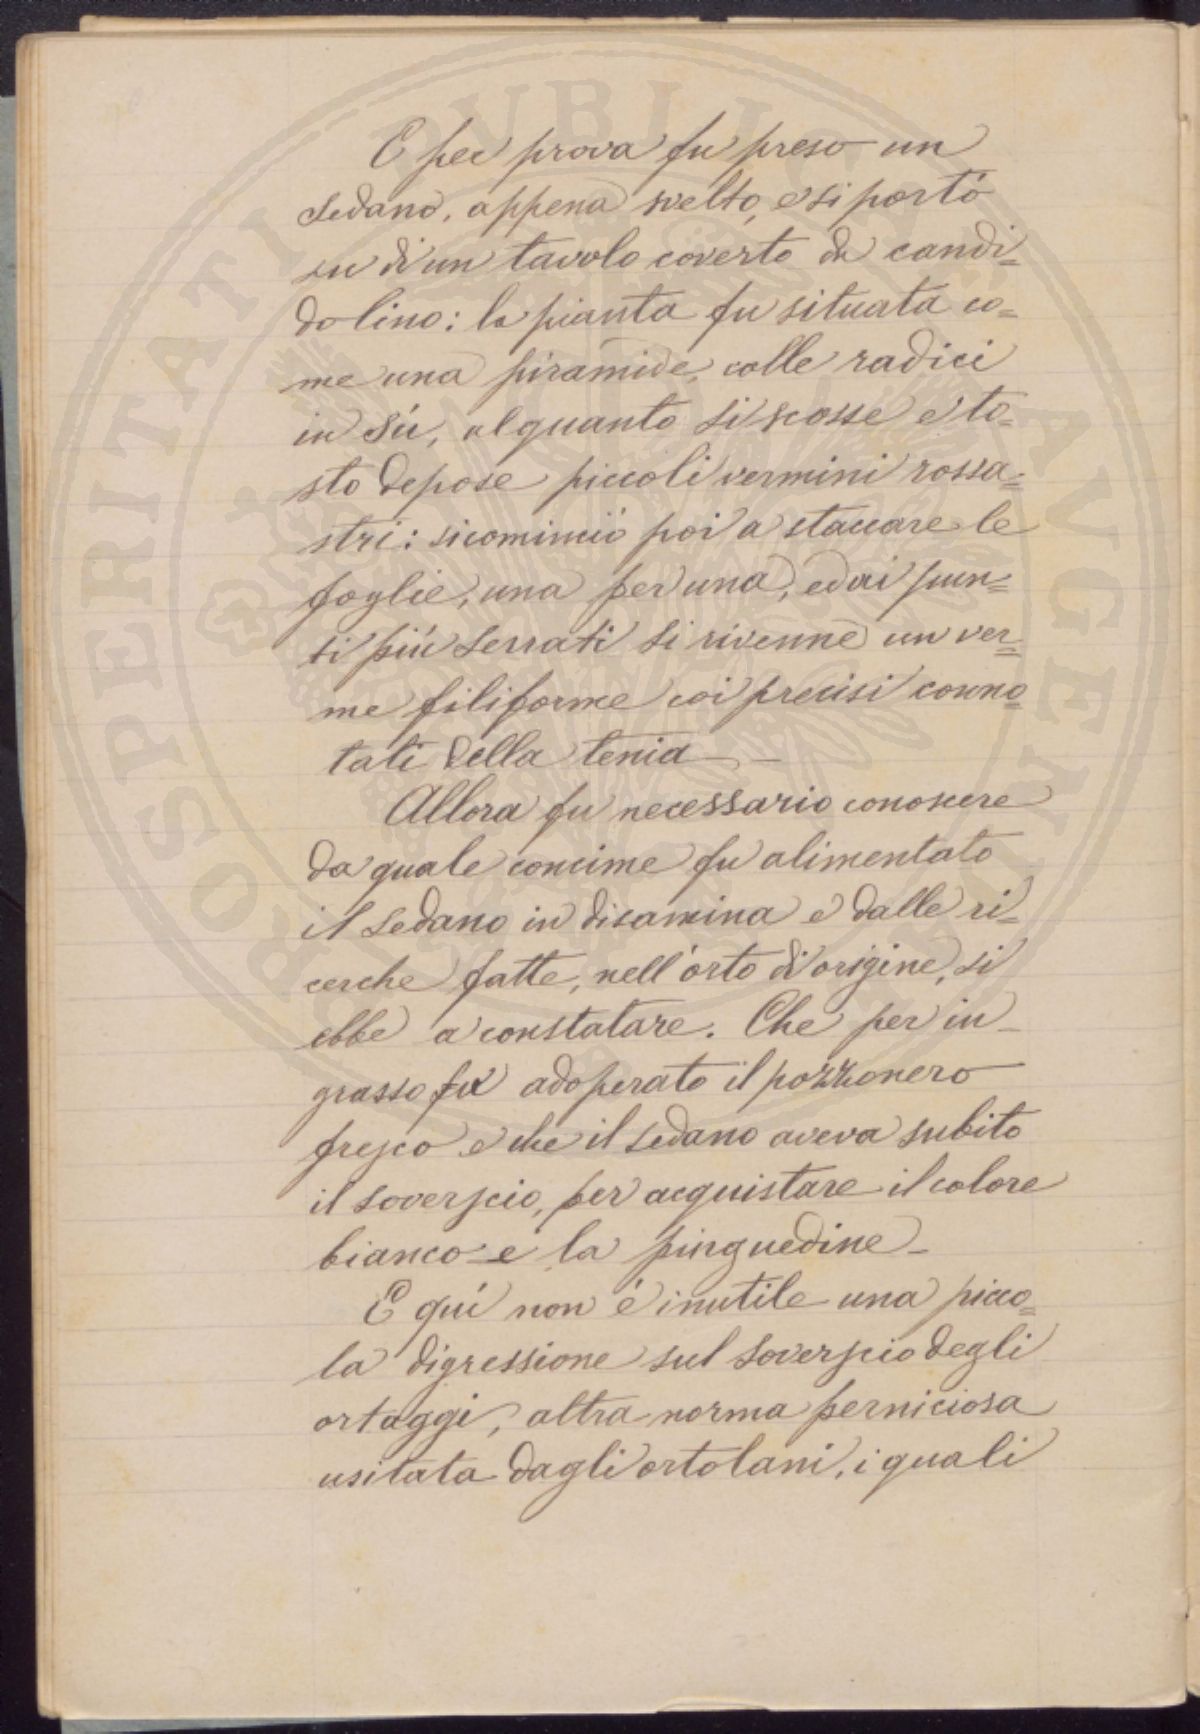 E per prova fu preso un
sedano, appena svelto, e si portò
su di un tavolo coverto da candi=
do lino: la pianta fu situata co=
me una piramide, colle radici
in sù, alquanto si scosse e to=
sto depose piccoli vermini rossa=
stri: si cominciò poi a staccare le
foglie, una per una, ed ai pun=
ti più serrati si rivenne un ver=
me filiforme coi precisi conno=
tati della tenia —
Allora fu necessario conoscere
da quale concime fu alimentato
il sedano in disamina e dalle ri=
cerche fatte, nell'orto di origine, si
ebbe a constatare. Che per in-
grasso fu adoperato il pozzonero
fresco e che il sedano aveva subito
il soverscio, per acquistare il colore
bianco e la pinguedine —
E quì non è inutile una picco=
la digressione sul soverscio degli
ortaggi, altra norma perniciosa
usitata dagli ortolani, i quali
PROSPERITATI PUBLICAE AUGENDAE